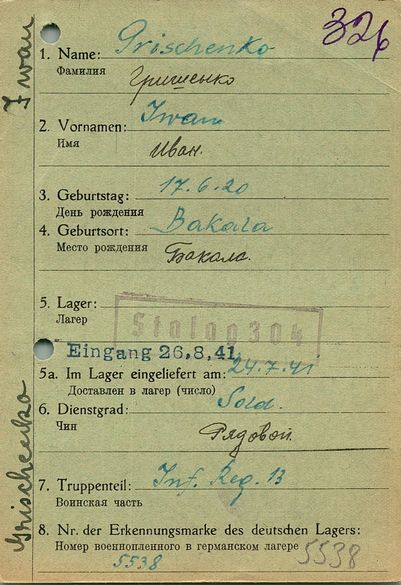 326
Iwan
1. Name: Grischenko
Фамилия Гришенко
2. Vornamen: Iwan
Имя Иван.
3. Geburtstag: 17.6.20
День рождения
4. Geburtsort: Bakala
Место рождения Бакала.
5. Lager: Stalag 304
Лагерь
Eingang 26.8.41
5a. Im Lager eingeliefert am: 24.7.41
Доставлен в лагерь (число)
6. Dienstgrad: Sold.
Чин Рядовой.
Grischenko
7. Truppenteil: Inf. Reg. 13
Воинская часть
8. Nr. der Erkennungsmarke des deutschen Lagers:
Номер военнопленного в германском лагере 5538
5538